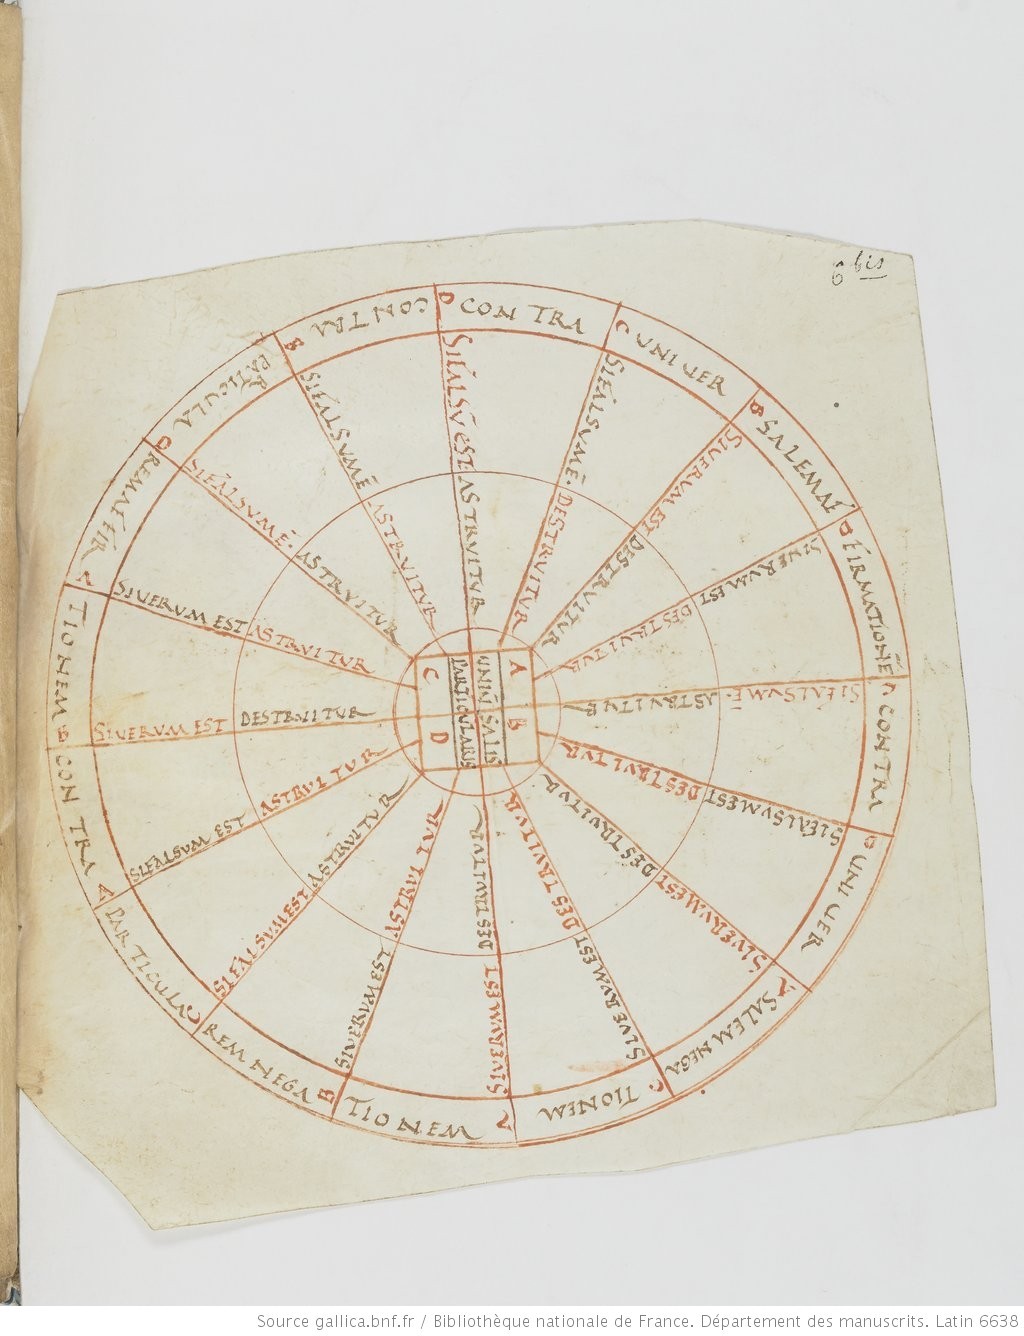 6 bis
D CON TRA
C UNIUER
B SALEMAF
D FIRMATIONĒ
C CONTRA
D UNIUER
A SALEM NEGA
C TIONEM
A TIONEM
B REM NEGA
C PARTICULA
A CON TRA
B TIONEM
A REMAFFIR
D PATICULA
B CON TRA
SIFALSŪ EST ASTRUITUR
SIFALSUMĒ. DESTRUITUR
SIUERUM EST DESTRUITUR
SIUERUMEST DESTRUITUR
SIFALSUMĒ. ASTRUITUR
SIFALSUMEST DESTRUITUR
SIUERUMEST DESTRUITUR
SIUERUMEST DESTRUITUR
SIUERUMEST DESTRUITUR
SIUERUMEST ASTRUITUR
SIFALSUMEST ASTRUITUR
SIFALSUM EST ASTRUITUR
SIUERUM EST DESTRUITUR
SIUERUM EST ASTRUITUR
SIFALSUMĒ. ASTRUITUR
SIFALSUMĒ ASTRUITUR
A B
UNIŪ SALIS
PARTICULARIS
C D
Source gallica.bnf.fr / Bibliothèque nationale de France. Département des manuscrits. Latin 6638